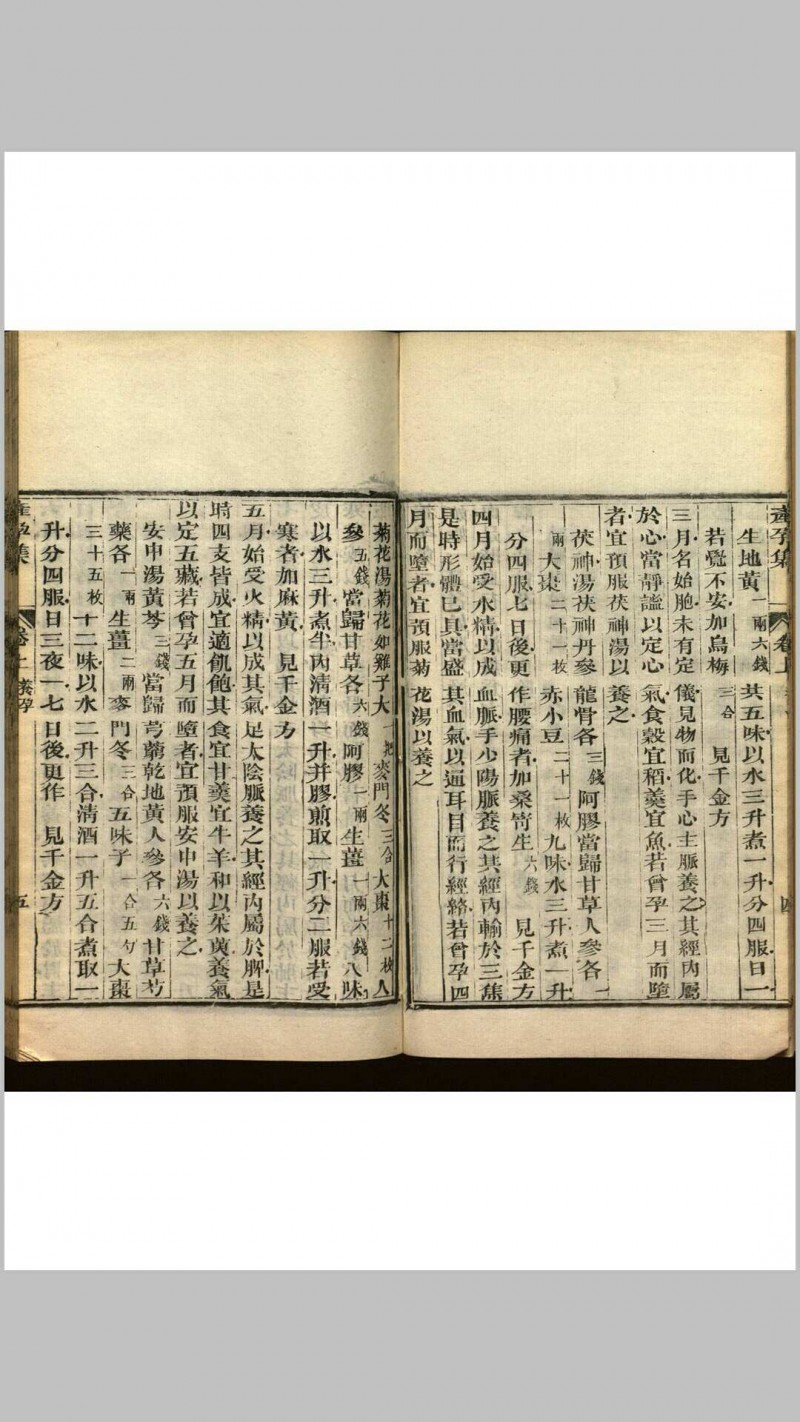 產孕集 卷上 四
生地黃一兩六錢 其五味以水三升煮一升分四服日一
若覺不安加烏梅三合 見千金方
三月名始胞未有定儀見物而化手心主脈養之其經內屬
於心當靜謐以定心氣食穀宜稻羹宜魚若曾孕三月而墮
者宜預服茯神湯以養之
茯神湯茯神丹參龍骨各三錢阿膠當歸甘草人參各一
兩大棗二十一枚赤小豆二十一枚九味水三升煮一升
分四服七日後更作腰痛者加桑寄生六錢 見千金方
四月始受水精以成血脈手少陽脈養之其經內輸於三焦
是時形體已具當盛其血氣以通耳目而行經絡若曾孕四
月而墮者宜預服菊花湯以養之
菊花湯菊花如雞子大一把麥門冬三合大棗十二枚人
參五錢當歸甘草各六錢阿膠一兩生薑一兩六錢八味
以水三升煮半內清酒一升并膠煎取一升分二服若受
寒者加麻黃 見千金方
五月始受火精以成其氣足太陰脈養之其經內屬於脾是
時四支皆成宜適飢飽其食宜甘羹宜牛羊和以茱萸養氣
以定五藏若曾孕五月而墮者宜預服安中湯以養之
安中湯黃芩三錢當歸芎藭乾地黃人參各六錢甘草芍
藥各一兩生薑二兩麥門冬三合五味子一合五勺大棗
三十五枚十二味以水二升三合清酒一升五合煮取一
升分四服日三夜一七日後更作 見千金方
產孕集 卷上 養孕 五